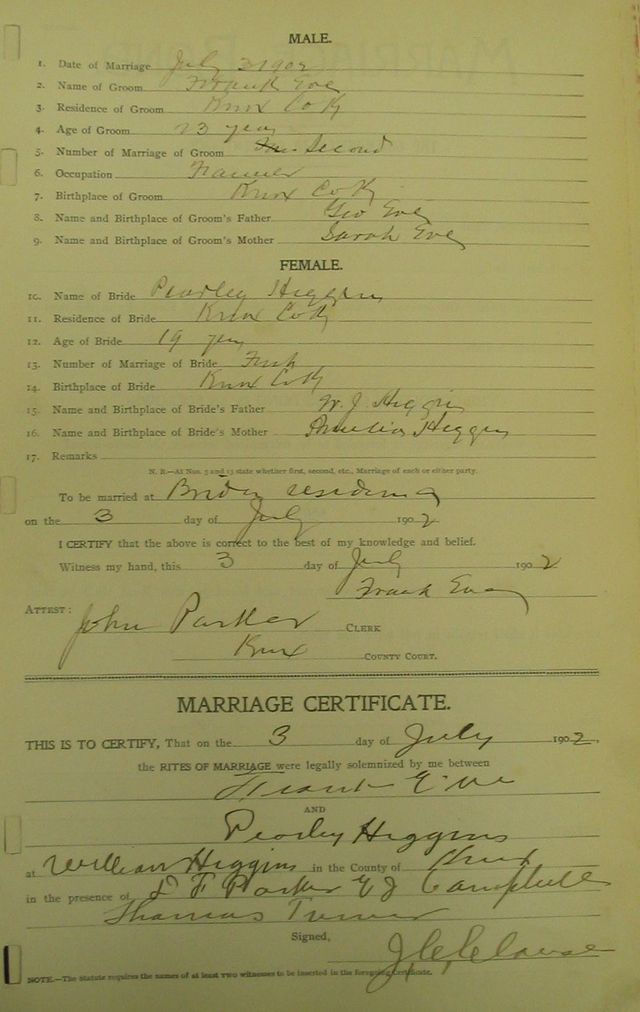 MALE.
1. Date of Marriage July 3 1902
2. Name of Groom Frank Eve
3. Residence of Groom Knox Co Ky
4. Age of Groom 23 years
5. Number of Marriage of Groom Second
6. Occupation Farmer
7. Birthplace of Groom Knox Co Ky
8. Name and Birthplace of Groom's Father Geo Eve
9. Name and Birthplace of Groom's Mother Sarah Eve
FEMALE.
10. Name of Bride Pearley Higgins
11. Residence of Bride Knox Co Ky
12. Age of Bride 19 years
13. Number of Marriage of Bride First
14. Birthplace of Bride Knox Co Ky
15. Name and Birthplace of Bride's Father W. J. Higgins
16. Name and Birthplace of Bride's Mother Higgins
17. Remarks
N. B.—At Nos. 5 and 13 state whether first, second, etc., Marriage of each or either party.
To be married at Brides residence
on the 3 day of July 1902
I CERTIFY that the above is correct to the best of my knowledge and belief.
Witness my hand, this 3 day of July 1902
Frank Eve
ATTEST: John Parker CLERK
Knox COUNTY COURT.
MARRIAGE CERTIFICATE.
THIS IS TO CERTIFY, That on the 3 day of July 1902.
the RITES OF MARRIAGE were legally solemnized by me between
Frank Eve
AND
Pearley Higgins
at William Higgins in the County of Knox
in the presence of F Parker E J Campbell
Thomas Turner
Signed,
NOTE.—The Statute requires the names of at least TWO witnesses to be inserted in the foregoing Certificate.